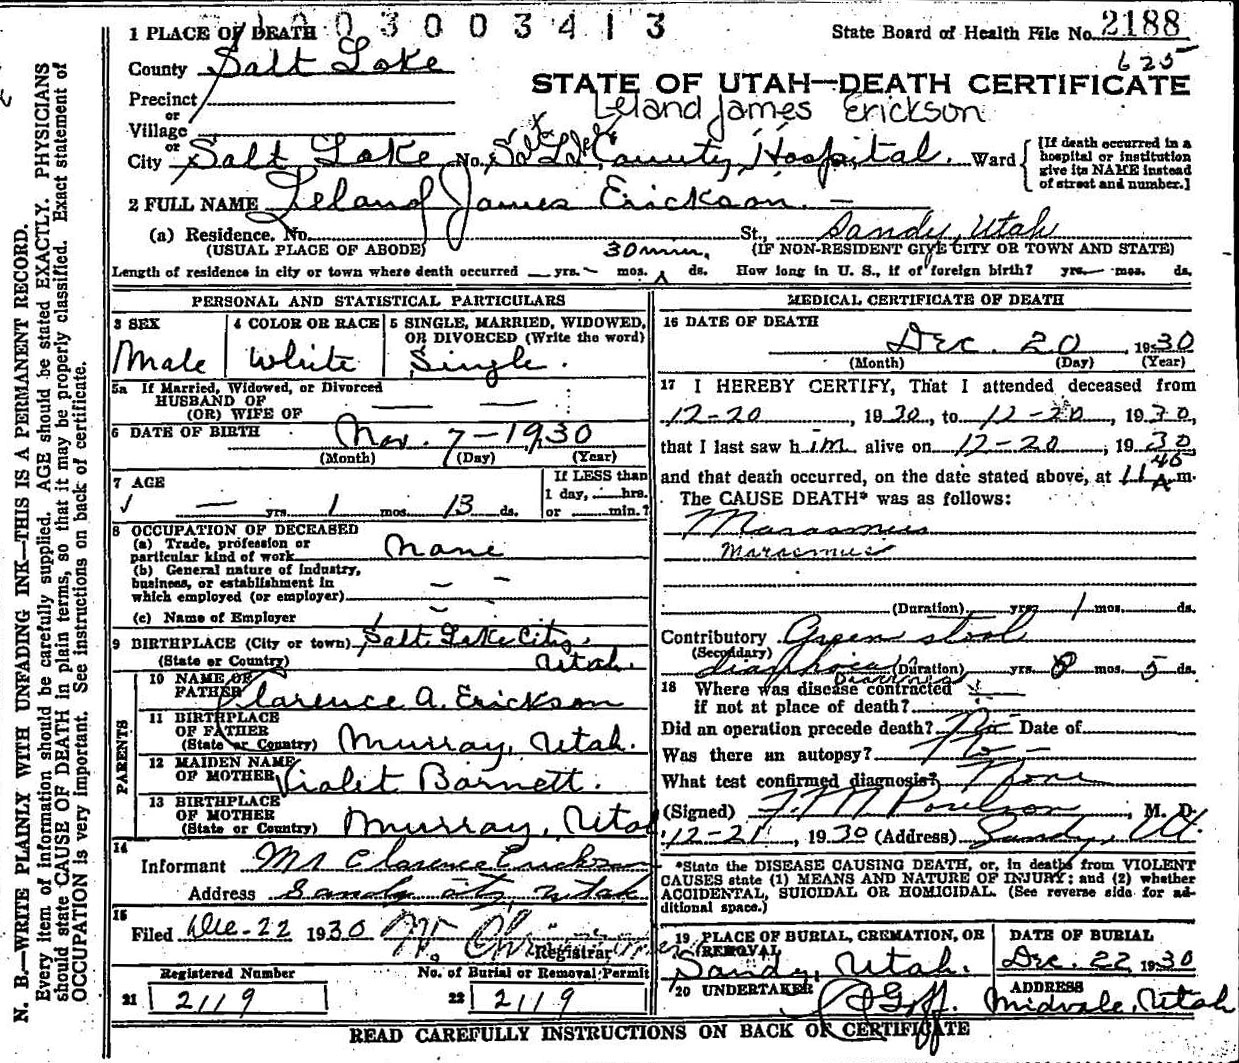 1003003413
1 PLACE OF DEATH
State Board of Health File No. 2188
625
County Salt Lake
STATE OF UTAH—DEATH CERTIFICATE
Precinct
or
Leland James Erickson
Village
or
City Salt Lake No. Salt Lake County Hospital. Ward
[If death occurred in a hospital or institution give its NAME instead of street and number.]
2 FULL NAME Leland James Erickson. —
(a) Residence. No. St., Sandy, Utah
(USUAL PLACE OF ABODE) 30 min. (IF NON-RESIDENT GIVE CITY OR TOWN AND STATE)
Length of residence in city or town where death occurred — yrs. — mos. ds. How long in U. S., if of foreign birth? yrs.— mos. ds.
PERSONAL AND STATISTICAL PARTICULARS
3 SEX 4 COLOR OR RACE 5 SINGLE, MARRIED, WIDOWED, OR DIVORCED (Write the word)
Male White Single.
5a If Married, Widowed, or Divorced
HUSBAND OF
(OR) WIFE OF — —
6 DATE OF BIRTH Nov. 7 – 1930
(Month) (Day) (Year)
7 AGE If LESS than
1 day, hrs.
— yrs. 1 mos. 13 ds. or min.?
8 OCCUPATION OF DECEASED
(a) Trade, profession or
particular kind of work None
(b) General nature of industry,
business, or establishment in
which employed (or employer) — —
(c) Name of Employer
9 BIRTHPLACE (City or town) Salt Lake City,
(State or Country) Utah.
PARENTS
10 NAME OF
FATHER Clarence A. Erickson
11 BIRTHPLACE
OF FATHER
(State or Country) Murray, Utah.
12 MAIDEN NAME
OF MOTHER Violet Barnett.
13 BIRTHPLACE
OF MOTHER
(State or Country) Murray, Utah
14
Informant Mr Clarence Erickson
Address Sandy city, Utah
15
Filed Dec-22 1930
Registrar
Registered Number No. of Burial or Removal Permit
21 2119 22 2119
MEDICAL CERTIFICATE OF DEATH
16 DATE OF DEATH
Dec. 20, 1930
(Month) (Day) (Year)
17 I HEREBY CERTIFY, That I attended deceased from
12-20, 1930, to 12-20, 1930,
that I last saw him alive on 12-20, 1930
and that death occurred, on the date stated above, at 11 40 A m.
The CAUSE DEATH* was as follows:
Marasmus
Marasmus
(Duration) yrs. 1 mos. ds.
Contributory Green stool
(Secondary)
diarrhoea (Duration) yrs. 0 mos. 5 ds.
18 Where was disease contracted
if not at place of death?
Did an operation precede death? No — Date of
Was there an autopsy? No —
What test confirmed diagnosis? None
(Signed) F. M. Poulson, M. D.
12-21, 1930 (Address) Sandy, Ut.
*State the DISEASE CAUSING DEATH, or, in deaths from VIOLENT
CAUSES state (1) MEANS AND NATURE OF INJURY; and (2) whether
ACCIDENTAL, SUICIDAL OR HOMICIDAL. (See reverse side for ad-
ditional space.)
19 PLACE OF BURIAL, CREMATION, OR REMOVAL DATE OF BURIAL
Sandy, Utah. Dec. 22, 1930
20 UNDERTAKER ADDRESS
Midvale, Utah
READ CAREFULLY INSTRUCTIONS ON BACK OF CERTIFICATE
N. B.—WRITE PLAINLY WITH UNFADING INK—THIS IS A PERMANENT RECORD.
Every item of information should be carefully supplied. AGE should be stated EXACTLY. PHYSICIANS
should state CAUSE OF DEATH in plain terms, so that it may be properly classified. Exact statement of
OCCUPATION is very important. See instructions on back of certificate.